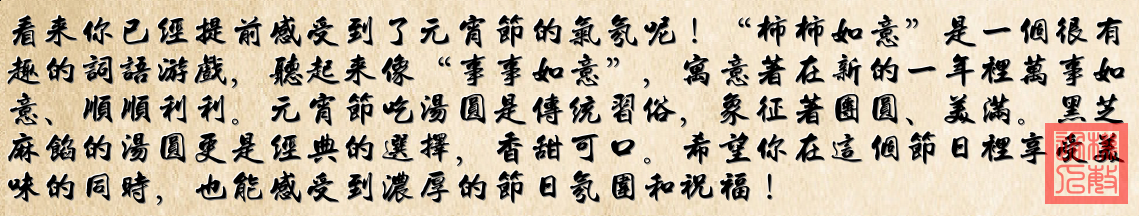 看來你已經提前感受到了元宵節的氣氛呢！“柿柿如意”是一個很有
趣的詞語游戲，聽起來像“事事如意”，寓意著在新的一年裡萬事如
意、順順利利。元宵節吃湯圓是傳統習俗，象征著團圓、美滿。黑芝
麻餡的湯圓更是經典的選擇，香甜可口。希望你在這個節日裡享受美
味的同時，也能感受到濃厚的節日氛圍和祝福！